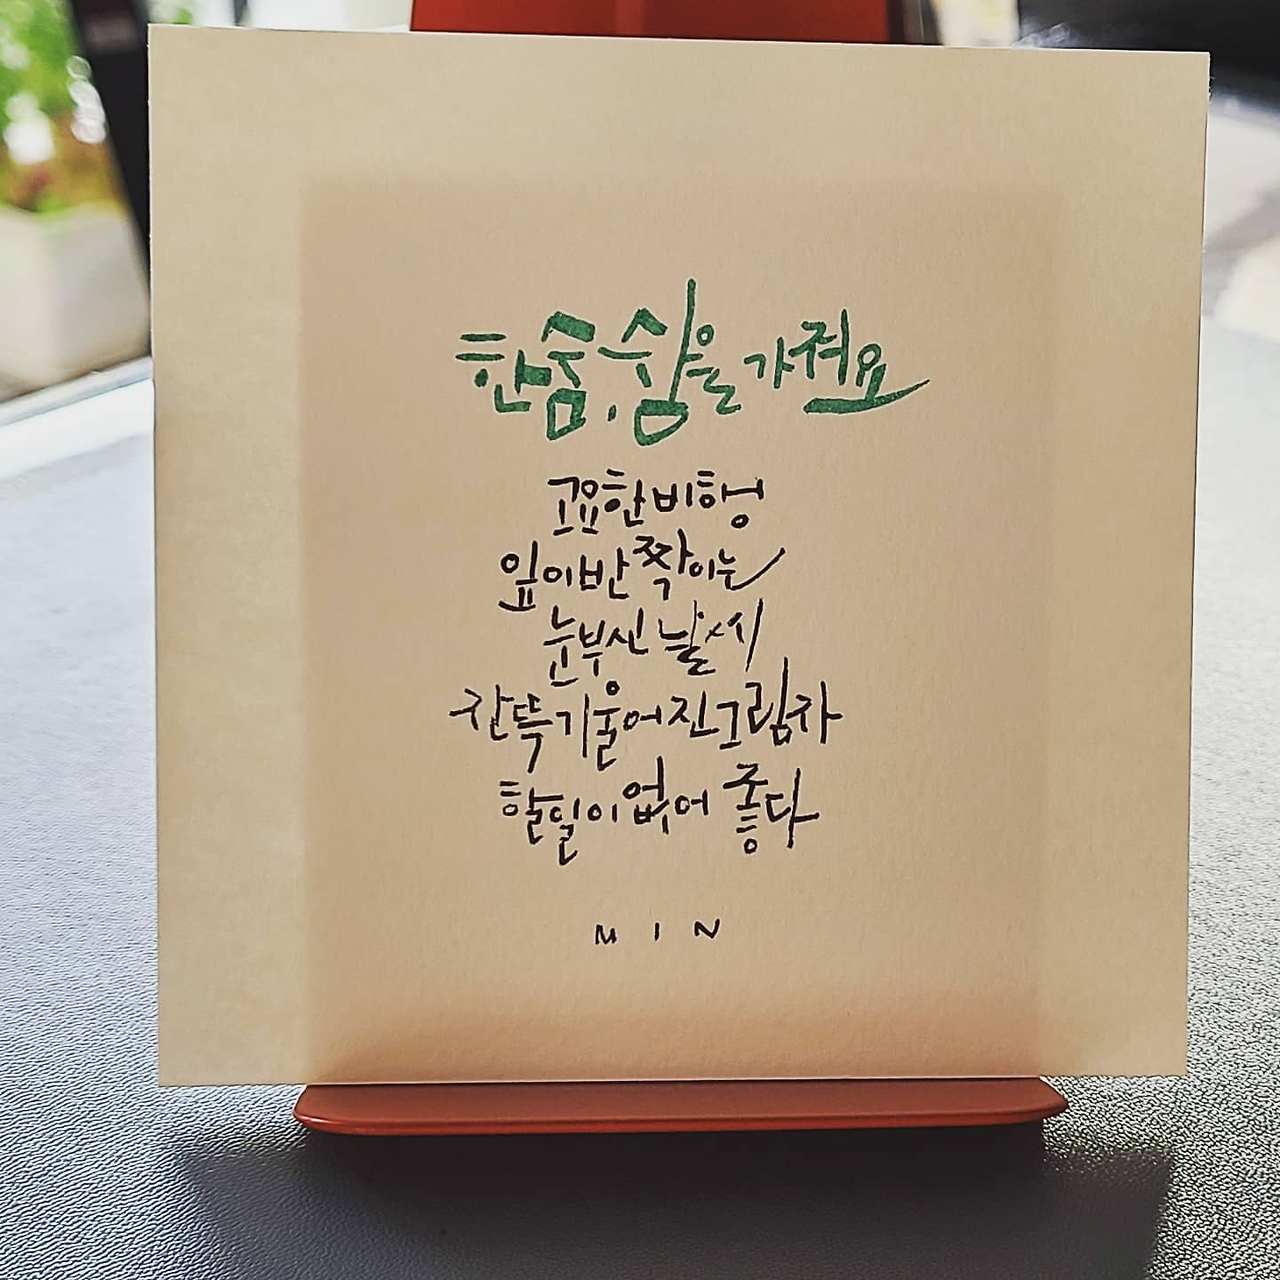 한숨, 쉼을 가져요
고요한 비행
잎이 반짝이는
눈부신 날씨
잔뜩 기울어진 그림자
할 일이 없어 좋다
MIN